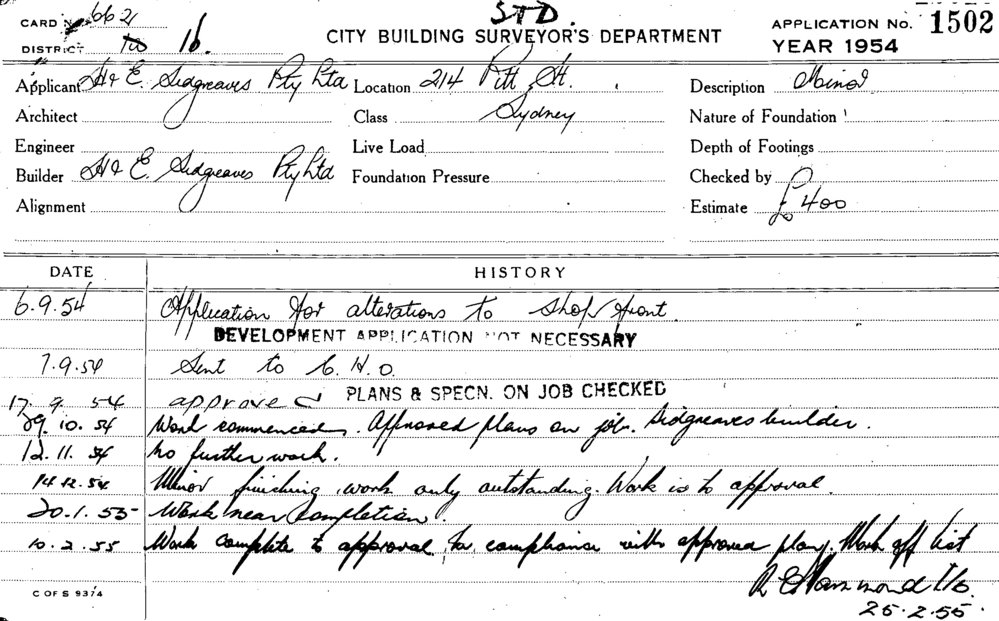 STD.
CARD No. 662
CITY BUILDING SURVEYOR'S DEPARTMENT
APPLICATION No. 1502
DISTRICT 16.
YEAR 1954
Applicant H & E. Sidgreaves Pty Ltd Location 214 Pitt St. Description Minor
Architect Class Sydney Nature of Foundation
Engineer Live Load Depth of Footings
Builder H & E. Sidgreaves Pty Ltd Foundation Pressure Checked by
Alignment Estimate £400
DATE HISTORY
6.9.54 Application for alterations to shop front.
DEVELOPMENT APPLICATION NOT NECESSARY
7.9.54 Sent to C.H.O.
PLANS & SPECN. ON JOB CHECKED
17.9.54 approved
29.10.54 Work commenced. Approved plans on job. Sidgreaves builder.
12.11.54 No further work.
14.12.54 Minor finishing work only outstanding. Work is to approval.
20.1.55 Work near completion.
10.2.55 Work complete to approval, in compliance with approved plans. Mark off list
R E Hammond
C OF S 93/4
25.2.55.